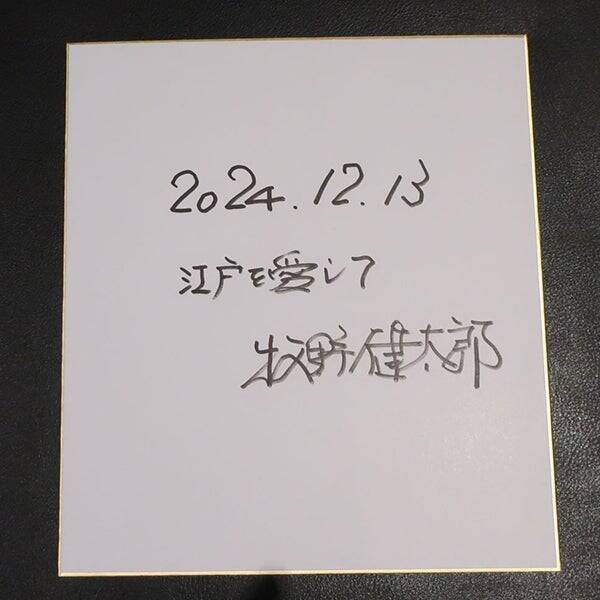 2024.12.13
江戸を愛して
牧野健太郎